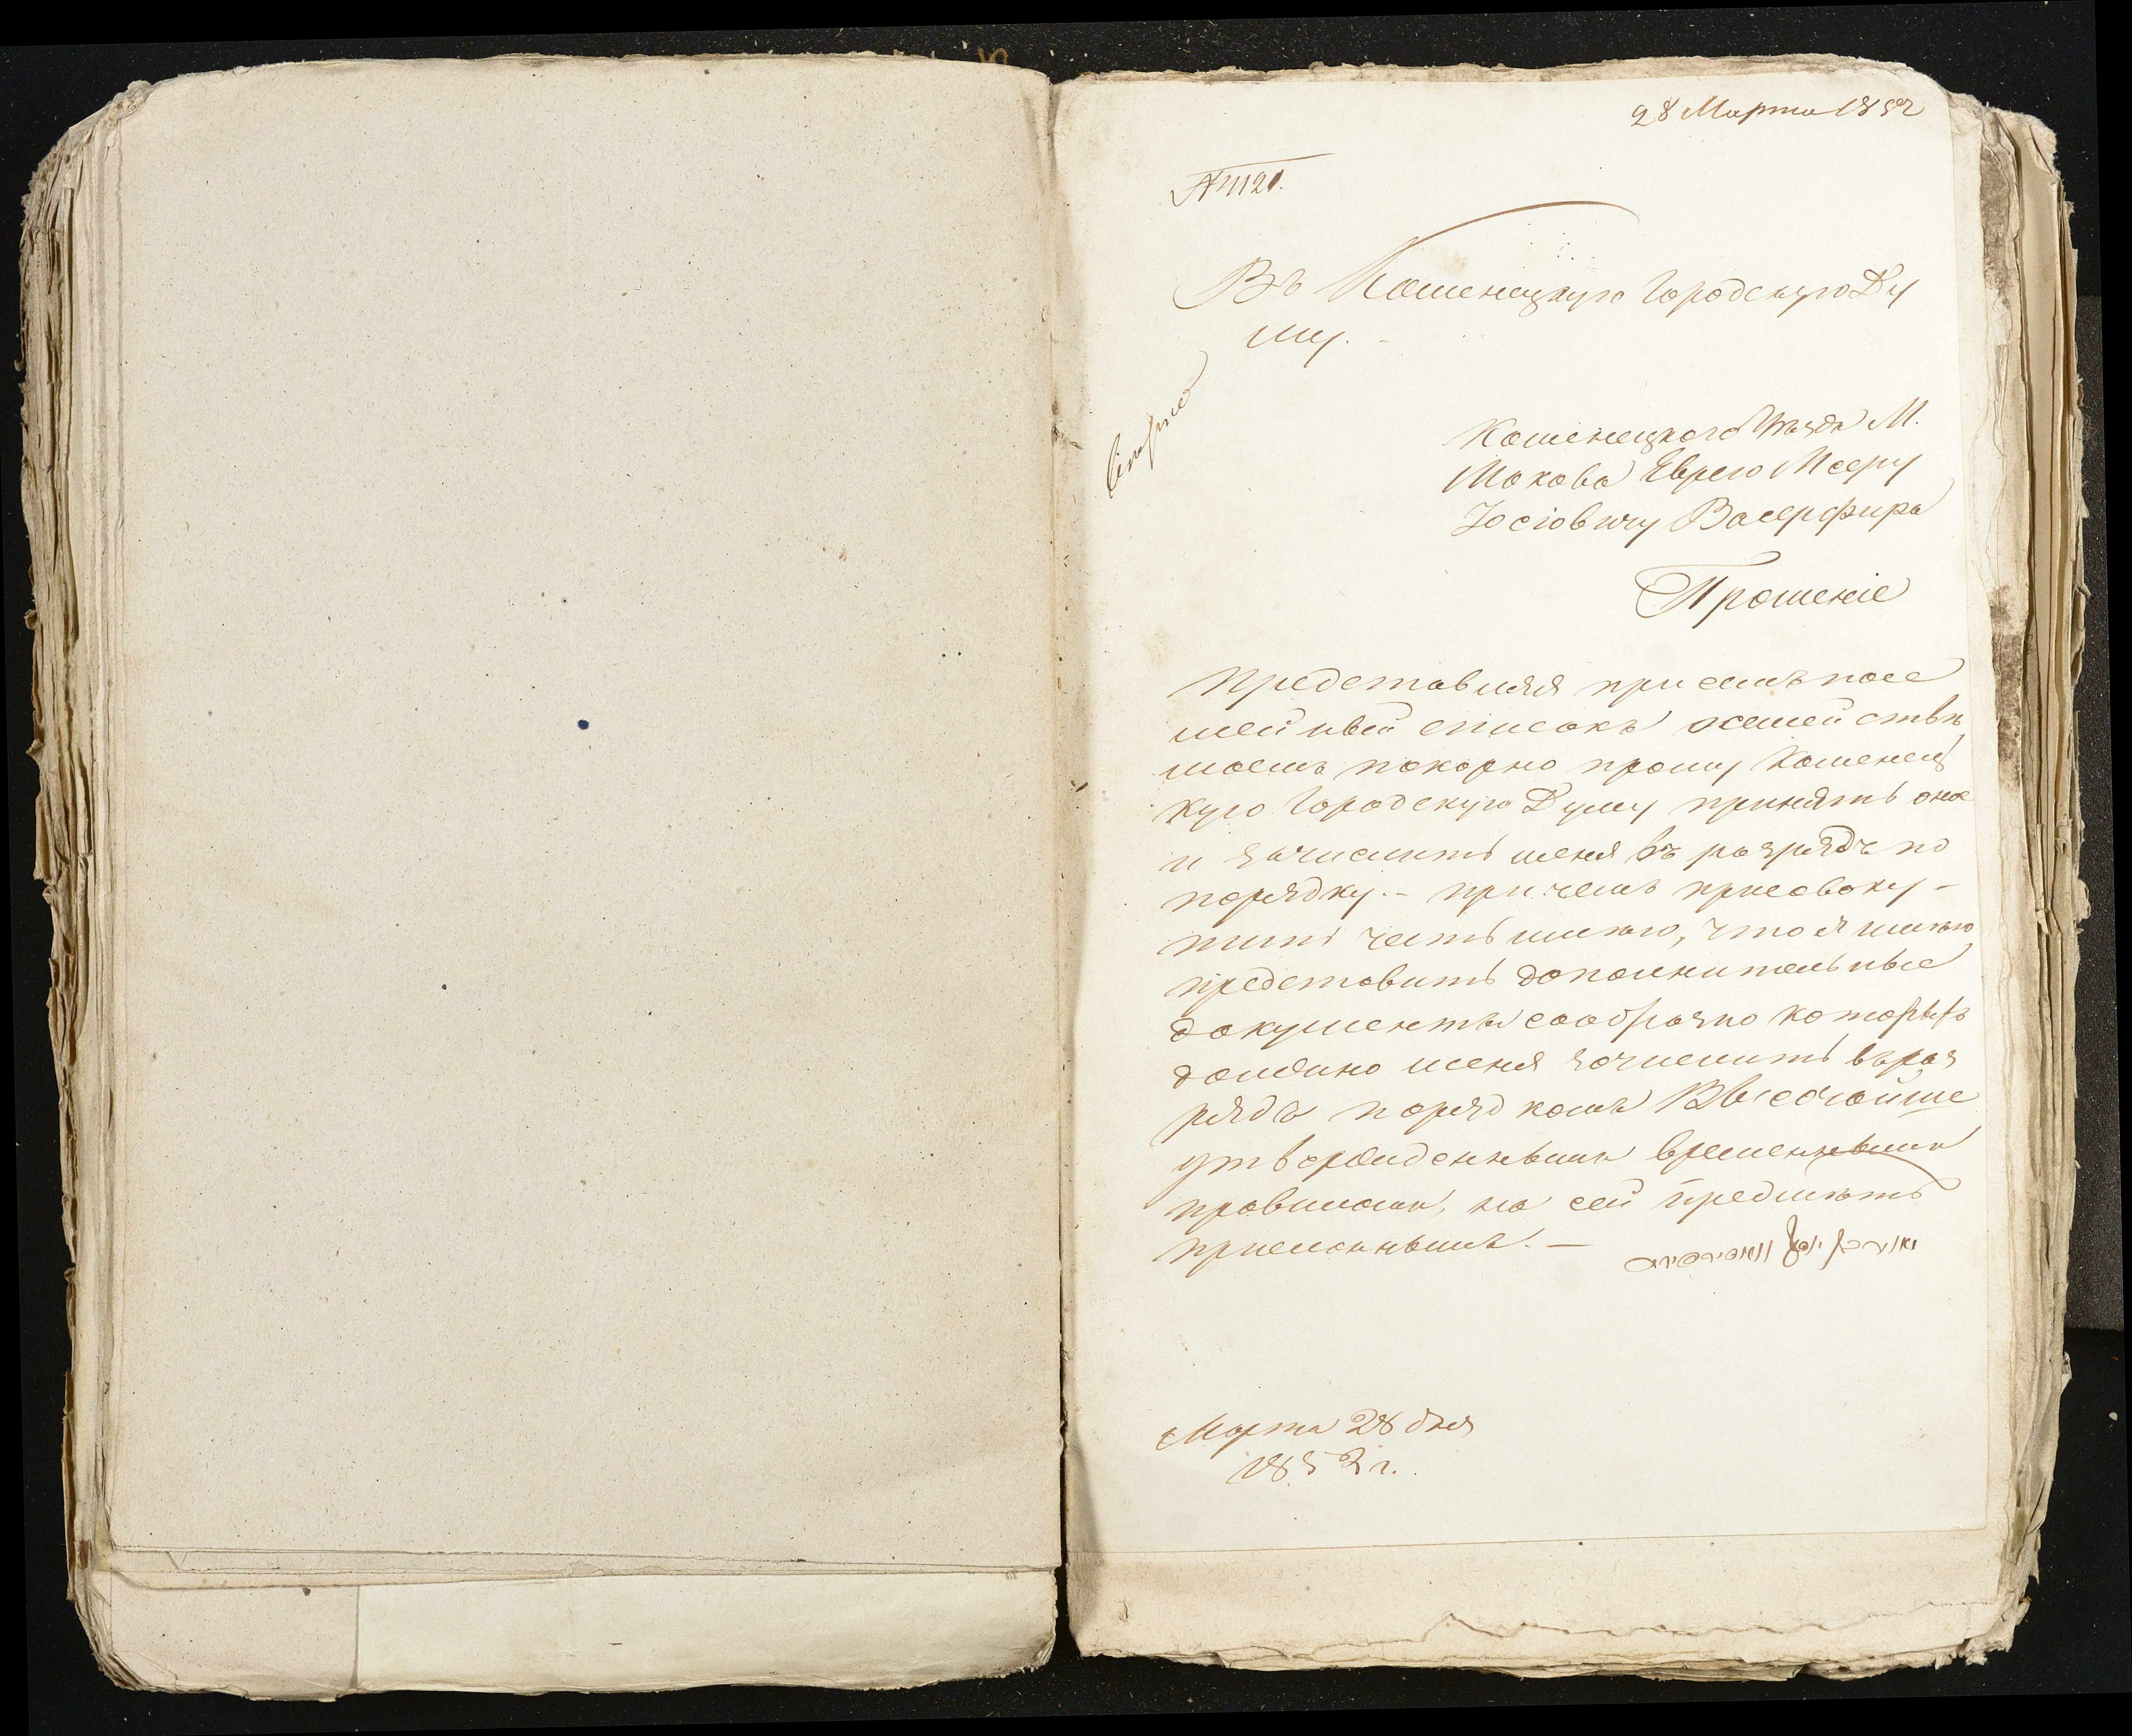 28 Марта 1852
№ 1121.
Въ Каменецкую Городскую Ду
му. -
Каменецкого Уѣзда М.
Макова Еврею Мееру
Іосіовичу Васерфира
Прошеніе
Представляя при семъ посе
мейный списокъ о семействѣ
моемъ покорно прошу Каменец
кую Городскую Думу принять оное
и зачислить меня въ разрядъ по
порядку. - при чемъ присовоку-
пить честь имѣю, что я имѣю
представить дополнительные
документы сообразно которыхъ
должно меня зачислить въ раз
рядъ порядкомъ Высочайше
утвержденными временными
правилами, на сей предметъ
. —
Марта 28 дня
1852 г.